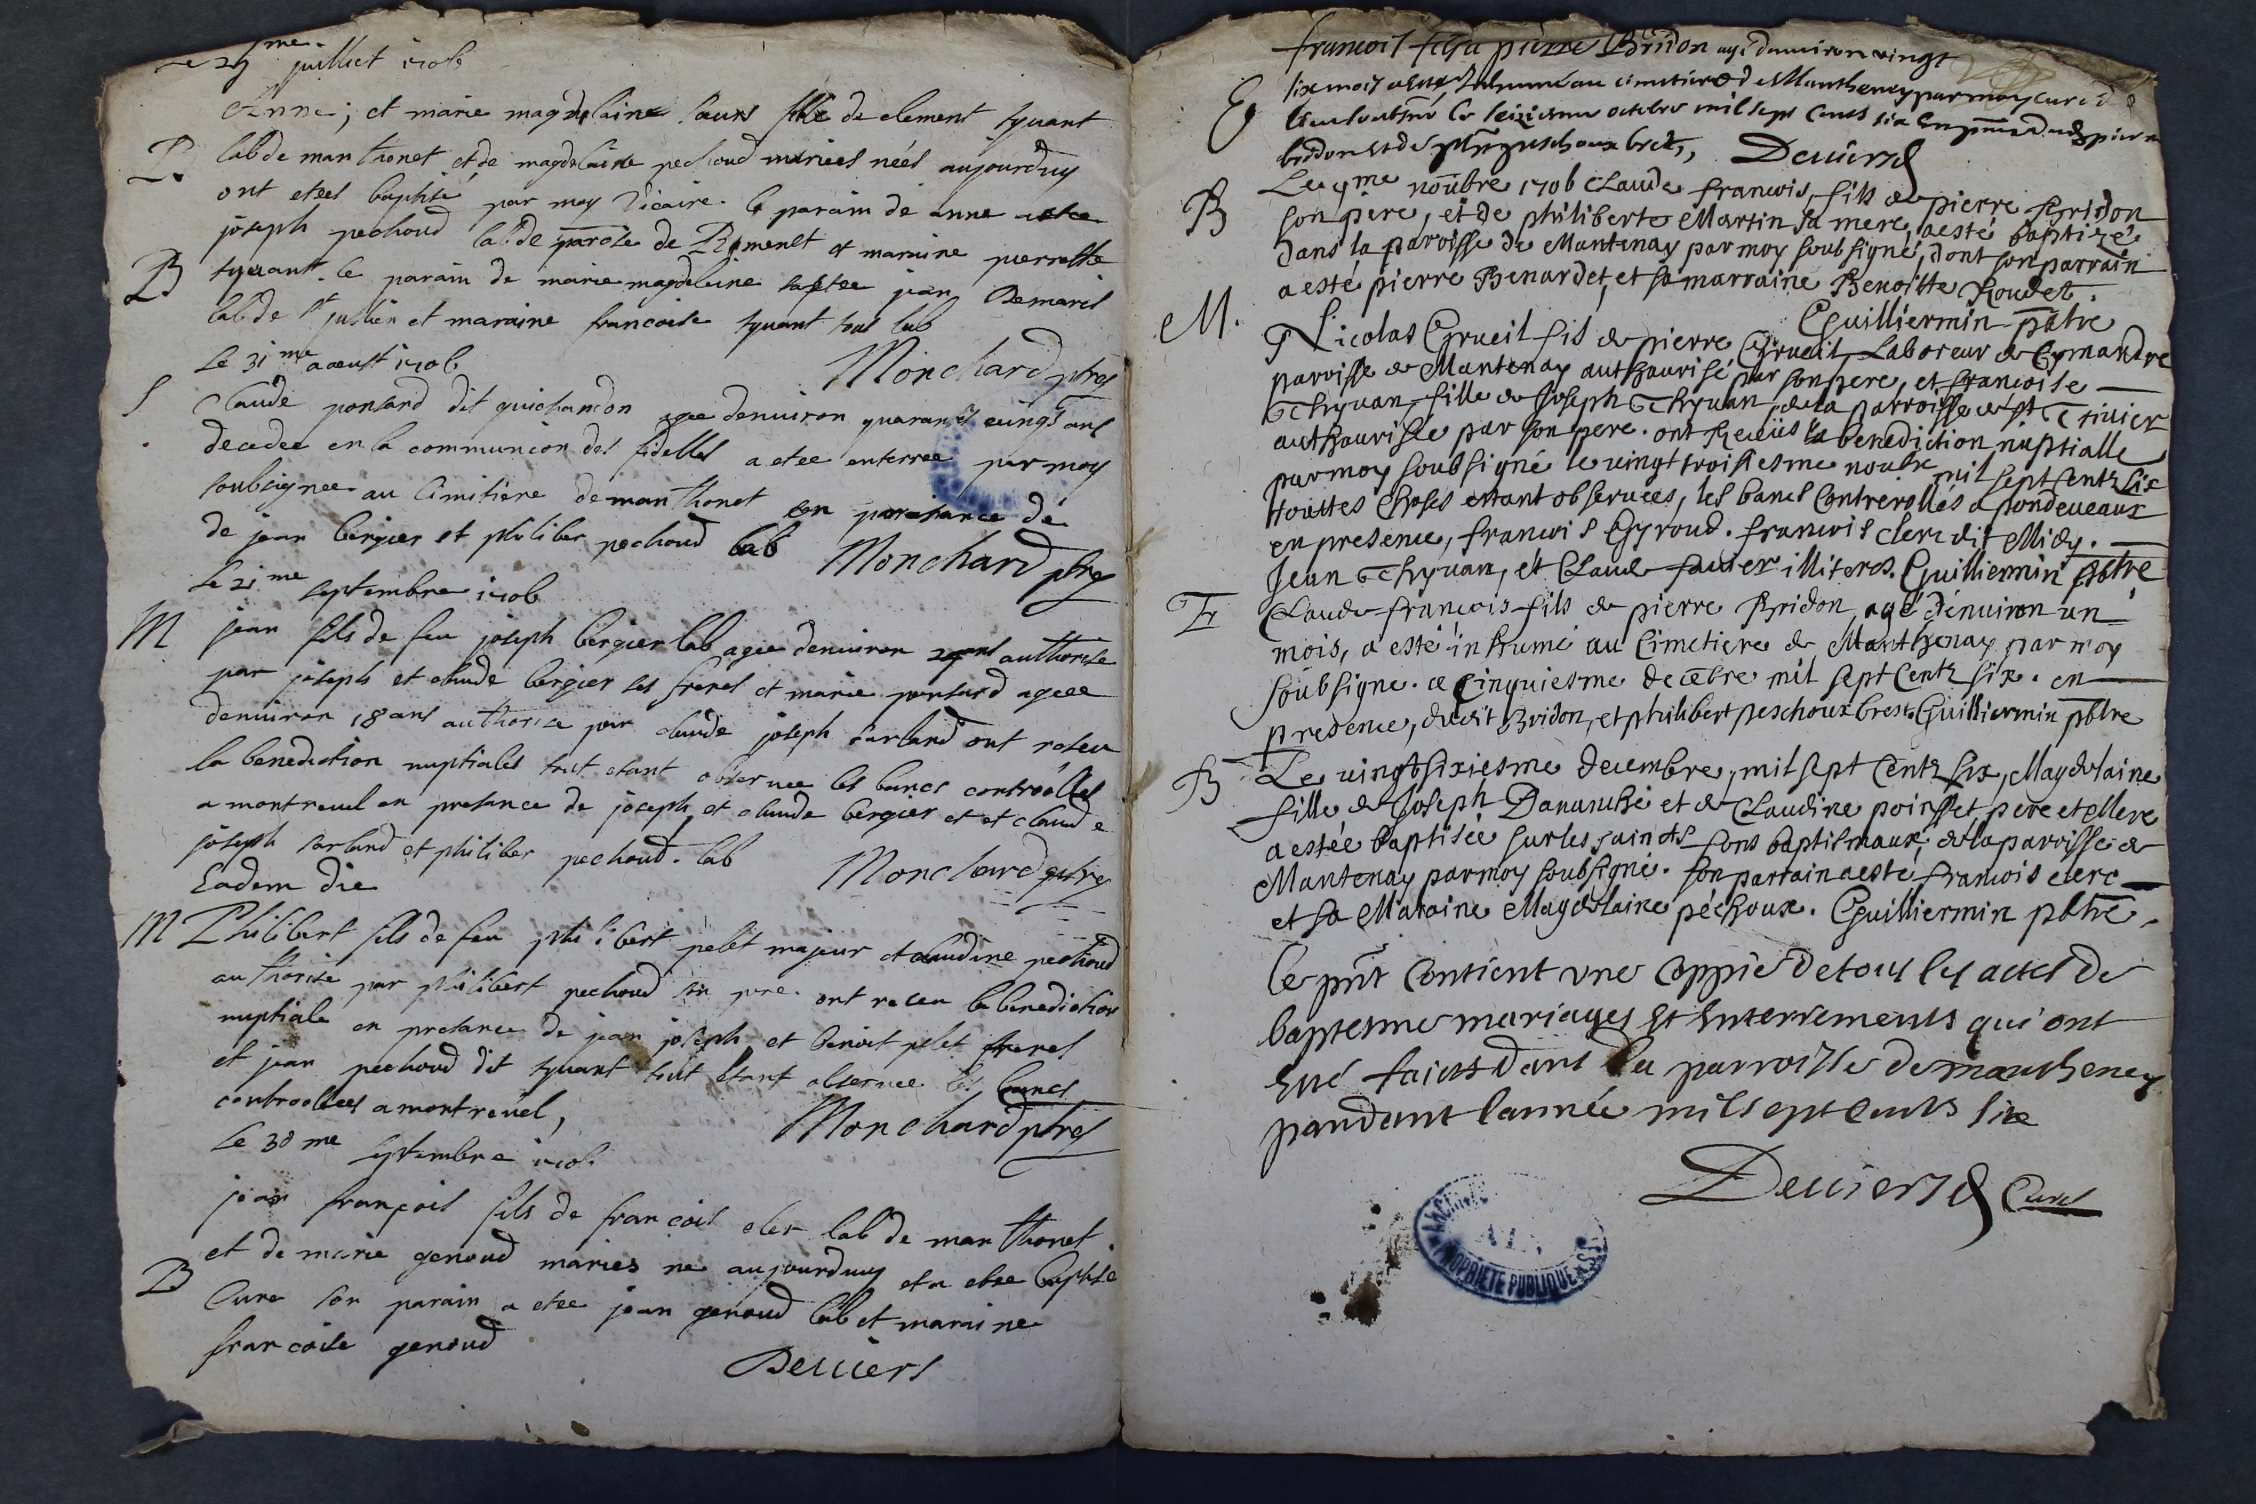 juilliet 1706
Anne; et marie magdelaine seurs fille de clement tyuant
B lab de manthonet et de magdelaine pechoud mariees néés aujourduy
ont etees baptisé par moy Vicaire. le parain de anne
joseph pechoud lab de paroise de Romenet et maraine pierrette
B tyuant. le parain de marie magdeleine jean Demaris
lab de st jullien et maraine francoise tyuant tous lab
Monchard ptres
le 31me aoust 1706
S Claude ponsard dit guichandon agee denuiron quarante cinqs ans
decedee en la communion des fidelles a etee enterree par moy
soubsignee au Cimitiere demanthonet en presance de
de jean bergier et philiber pechoud lab Monchard ptres
le 21me septembre 1706
M jean fils de feu joseph bergier lab agee denuiron ans authorise
par joseph et claude bergier ses freres et marie ponsard agee
denuiron 18 ans authorise par claude joseph sarland ont receu
la benediction nuptiales tout etant obseruee les bancs controolles
a montreuel en presance de joseph et claude bergier et et claude
joseph sarland et philiber pechoud. lab Monchard ptres
Eadem die
M Philibert fils de feu philibert pelet majeur et claudine pechoud
authorise par philibert pechoud son pere. ont receu la benediction
nuptiale en presance de jean joseph et benoit pelet freres
et jean pechoud dit tyuant tout etant obseruee les bancs
controollees a montreuel,
Monchard ptres
le 30me septembre 1706
jean françois fils de françois cler lab de manthonet
et de marie genoud maries ne aujourduy et a etee baptisé
B Cure son parain a etee jean genoud lab et maraine
francoise genoud
Deuiers
francois fils a pierre Bridon agé danuiron vingt
E six mois a esté Inhumé au cimetiere de Mantheney par moy curé
soubsné le seiziesme octobre mil sept cents six En pnce dud pierre
bridon et de peschoux brest, Deuiers
B Le me noubre 1706 Claude francois, fils de pierre Bridon
son pere, et de philiberte Martin sa mere, a esté baptizé
dans la paroisse de Mantenay par moy soubsigné, dont son parrain
a esté pierre Benardet, et sa marraine Benoitte Roudet.
Guilliermin pbtre
M. Nicolas Grueil fils de pierre Grueil, Laboreur de Cymandre
paroisse de Mantenay authaurisé par son pere, et francoise
Thyuan, fille de Joseph Thyuan, de la parroisse de st Triuier
authaurisée par son pere. ont Receüs la benediction nuptialle
par moy soubsigné le vingt troisiesme noubre mil sept sentz six
touttes choses estant obseruées, les bancs Contrerollés a pondeueaux
en presence, francois Gyroud. francois clerc dit Midy.
Jean Thyuan, ét Claude fauier illiteres. Guilliermin pbtre
Er Claude francois fils de pierre Bridon, agé dénuiron un
mois, a esté inhumé au Cimetiere de Manthenay par moy
soubsigne. ce Cinquiesme decēbre mil sept Centz six. en
presence, dudit Bridon, et philibert peschoux brest. Guilliermin pbtre
B Le vingtsixiesme decembre, mil sept Centz six, Magdelaine
fille de Joseph Dananché et de Claudine poinsset, pere et Mere
a estée baptisée sur les saincts fons baptismaux, de la paroisse de
Mantenay par moy soubsigné. son parrain a esté francois clerc
et sa Maraine Magdelaine péchoux. Guilliermin pbtre.
le pnt Contient une Coppie de tous les actes de
baptesme mariages et Enterrements qui ont
Esté faicts dans la parroisse de mantheney
pandant l'année mil sept cents six
Deuiers Curé
PROPRIETE PUBLIQUE